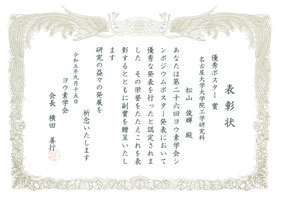 表彰状
優秀ポスター賞
名古屋大学大学院工学研究科
松山 俊輝 殿
あなたは第二十六回ヨウ素学会シ
ンポジウムポスター発表において
優秀な発表を行ったと認定されま
した その栄誉をたたえこれを表
彰するとともに副賞を贈呈いたし
ます
研究の益々の発展を
祈念いたします
令和五年九月十五日
ヨウ素学会
会長 横田 善行